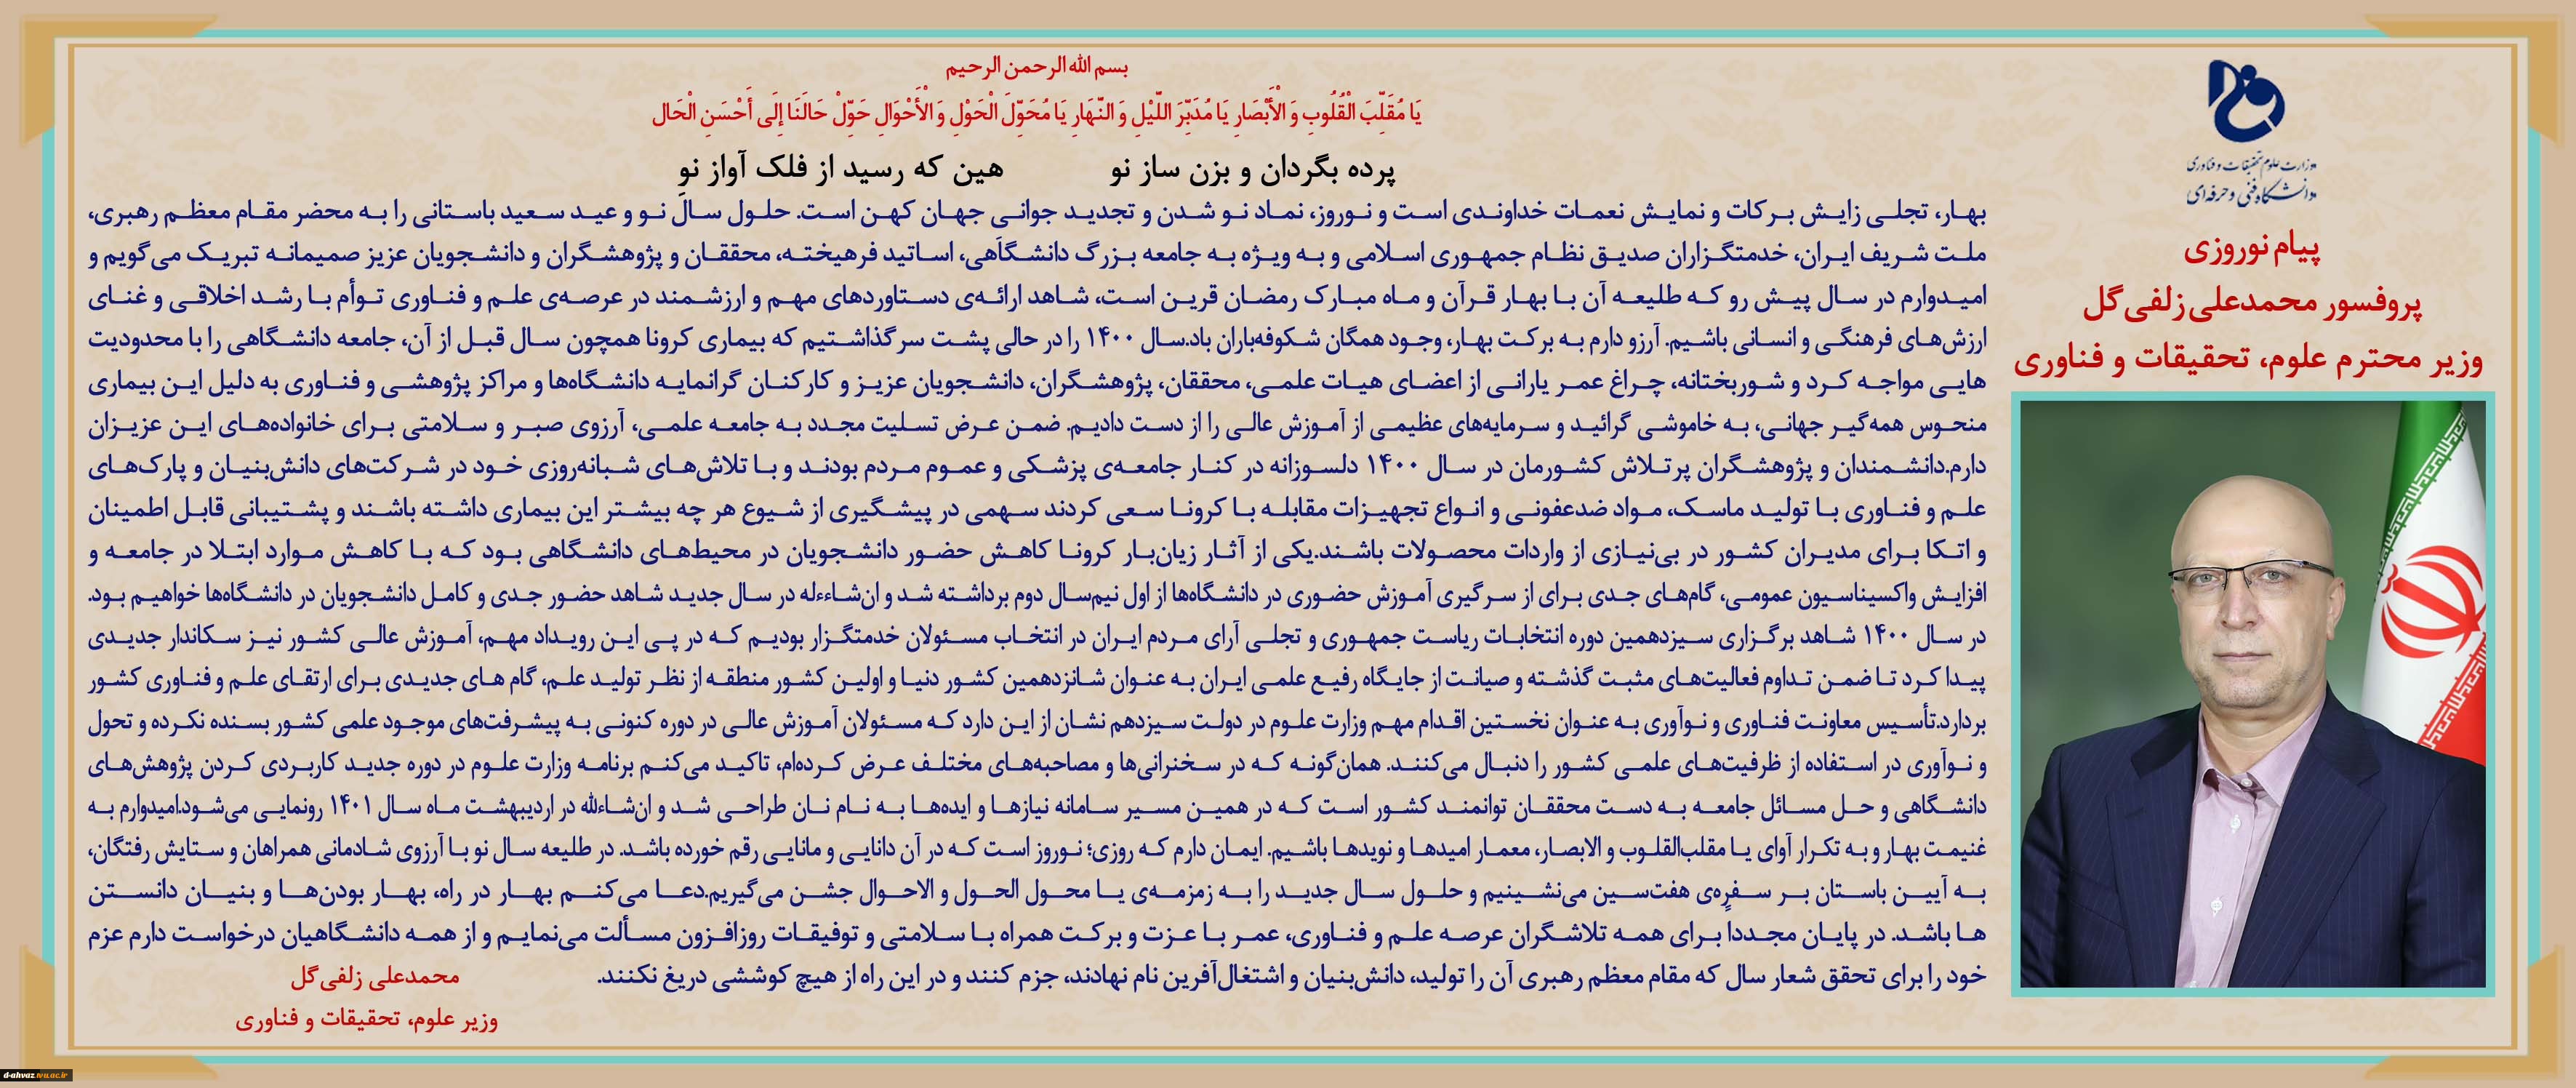 وزارت علوم تحقیقات و فناوری
دانشگاه فنی و حرفه‌ای
پیام نوروزی
پروفسور محمدعلی زلفی‌گل
وزیر محترم علوم، تحقیقات و فناوری
بسم الله الرحمن الرحیم
یَا مُقَلِّبَ الْقُلُوبِ وَ الْأَبْصَارِ یَا مُدَبِّرَ اللَّیْلِ وَ النَّهَارِ یَا مُحَوِّلَ الْحَوْلِ وَ الْأَحْوَالِ حَوِّلْ حَالَنَا إِلَی أَحْسَنِ الْحَال
پرده بگردان و بزن ساز نو هین که رسید از فلک آواز نو
بهار، تجلی زایش برکات و نمایش نعمات خداوندی است و نوروز، نماد نو شدن و تجدید جوانی جهان کهن است. حلول سال نو و عید سعید باستانی را به محضر مقام معظم رهبری،
ملت شریف ایران، خدمتگزاران صدیق نظام جمهوری اسلامی و به ویژه به جامعه بزرگ دانشگاهی، اساتید فرهیخته، محققان و پژوهشگران و دانشجویان عزیز صمیمانه تبریک می‌گویم و
امیدوارم در سال پیش رو که طلیعه آن با بهار قرآن و ماه مبارک رمضان قرین است، شاهد ارائه‌ی دستاوردهای مهم و ارزشمند در عرصه‌ی علم و فناوری توأم با رشد اخلاقی و غنای
ارزش‌های فرهنگی و انسانی باشیم. آرزو دارم به برکت بهار، وجود همگان شکوفه‌باران باد.سال ۱۴۰۰ را در حالی پشت سر گذاشتیم که بیماری کرونا همچون سال قبل از آن، جامعه دانشگاهی را با محدودیت
هایی مواجه کرد و شوربختانه، چراغ عمر یارانی از اعضای هیات علمی، محققان، پژوهشگران، دانشجویان عزیز و کارکنان گرانمایه دانشگاه‌ها و مراکز پژوهشی و فناوری به دلیل این بیماری
منحوس همه‌گیر جهانی، به خاموشی گرائید و سرمایه‌های عظیمی از آموزش عالی را از دست دادیم. ضمن عرض تسلیت مجدد به جامعه علمی، آرزوی صبر و سلامتی برای خانواده‌های این عزیزان
دارم.دانشمندان و پژوهشگران پرتلاش کشورمان در سال ۱۴۰۰ دلسوزانه در کنار جامعه‌ی پزشکی و عموم مردم بودند و با تلاش‌های شبانه‌روزی خود در شرکت‌های دانش‌بنیان و پارک‌های
علم و فناوری با تولید ماسک، مواد ضدعفونی و انواع تجهیزات مقابله با کرونا سعی کردند سهمی در پیشگیری از شیوع هر چه بیشتر این بیماری داشته باشند و پشتیبانی قابل اطمینان
و اتکا برای مدیران کشور در بی‌نیازی از واردات محصولات باشند.یکی از آثار زیان‌بار کرونا کاهش حضور دانشجویان در محیط‌های دانشگاهی بود که با کاهش موارد ابتلا در جامعه و
افزایش واکسیناسیون عمومی، گام‌های جدی برای از سرگیری آموزش حضوری در دانشگاه‌ها از اول نیم‌سال دوم برداشته شد و ان‌شاءءله در سال جدید شاهد حضور جدی و کامل دانشجویان در دانشگاه‌ها خواهیم بود.
در سال ۱۴۰۰ شاهد برگزاری سیزدهمین دوره انتخابات ریاست جمهوری و تجلی آرای مردم ایران در انتخاب مسئولان خدمتگزار بودیم که در پی این رویداد مهم، آموزش عالی کشور نیز سکاندار جدیدی
پیدا کرد تا ضمن تداوم فعالیت‌های مثبت گذشته و صیانت از جایگاه رفیع علمی ایران به عنوان شانزدهمین کشور دنیا و اولین کشور منطقه از نظر تولید علم، گام های جدیدی برای ارتقای علم و فناوری کشور
بردارد.تأسیس معاونت فناوری و نوآوری به عنوان نخستین اقدام مهم وزارت علوم در دولت سیزدهم نشان از این دارد که مسئولان آموزش عالی در دوره کنونی به پیشرفت‌های موجود علمی کشور بسنده نکرده و تحول
و نوآوری در استفاده از ظرفیت‌های علمی کشور را دنبال می‌کنند. همان‌گونه که در سخنرانی‌ها و مصاحبه‌های مختلف عرض کرده‌ام، تاکید می‌کنم برنامه وزارت علوم در دوره جدید کاربردی کردن پژوهش‌های
دانشگاهی و حل مسائل جامعه به دست محققان توانمند کشور است که در همین مسیر سامانه نیازها و ایده‌ها به نام نان طراحی شد و ان‌شاءالله در اردیبهشت ماه سال ۱۴۰۱ رونمایی می‌شود.امیدوارم به
غنیمت بهار و به تکرار آوای یا مقلب‌القلوب و الابصار، معمار امیدها و نویدها باشیم. ایمان دارم که روزی؛ نوروز است که در آن دانایی و مانایی رقم خورده باشد. در طلیعه سال نو با آرزوی شادمانی همراهان و ستایش رفتگان،
به آیین باستان بر سفره‌ی هفت‌سین می‌نشینیم و حلول سال جدید را به زمزمه‌ی یا محول الحول و الاحوال جشن می‌گیریم.دعا می‌کنم بهار در راه، بهار بودن‌ها و بنیان دانستن
ها باشد. در پایان مجدداً برای همه تلاشگران عرصه علم و فناوری، عمر با عزت و برکت همراه با سلامتی و توفیقات روزافزون مسألت می‌نمایم و از همه دانشگاهیان درخواست دارم عزم
خود را برای تحقق شعار سال که مقام معظم رهبری آن را تولید، دانش‌بنیان و اشتغال‌آفرین نام نهادند، جزم کنند و در این راه از هیچ کوششی دریغ نکنند.
محمدعلی زلفی‌گل
وزیر علوم، تحقیقات و فناوری
d-ahvaz.tvu.ac.ir